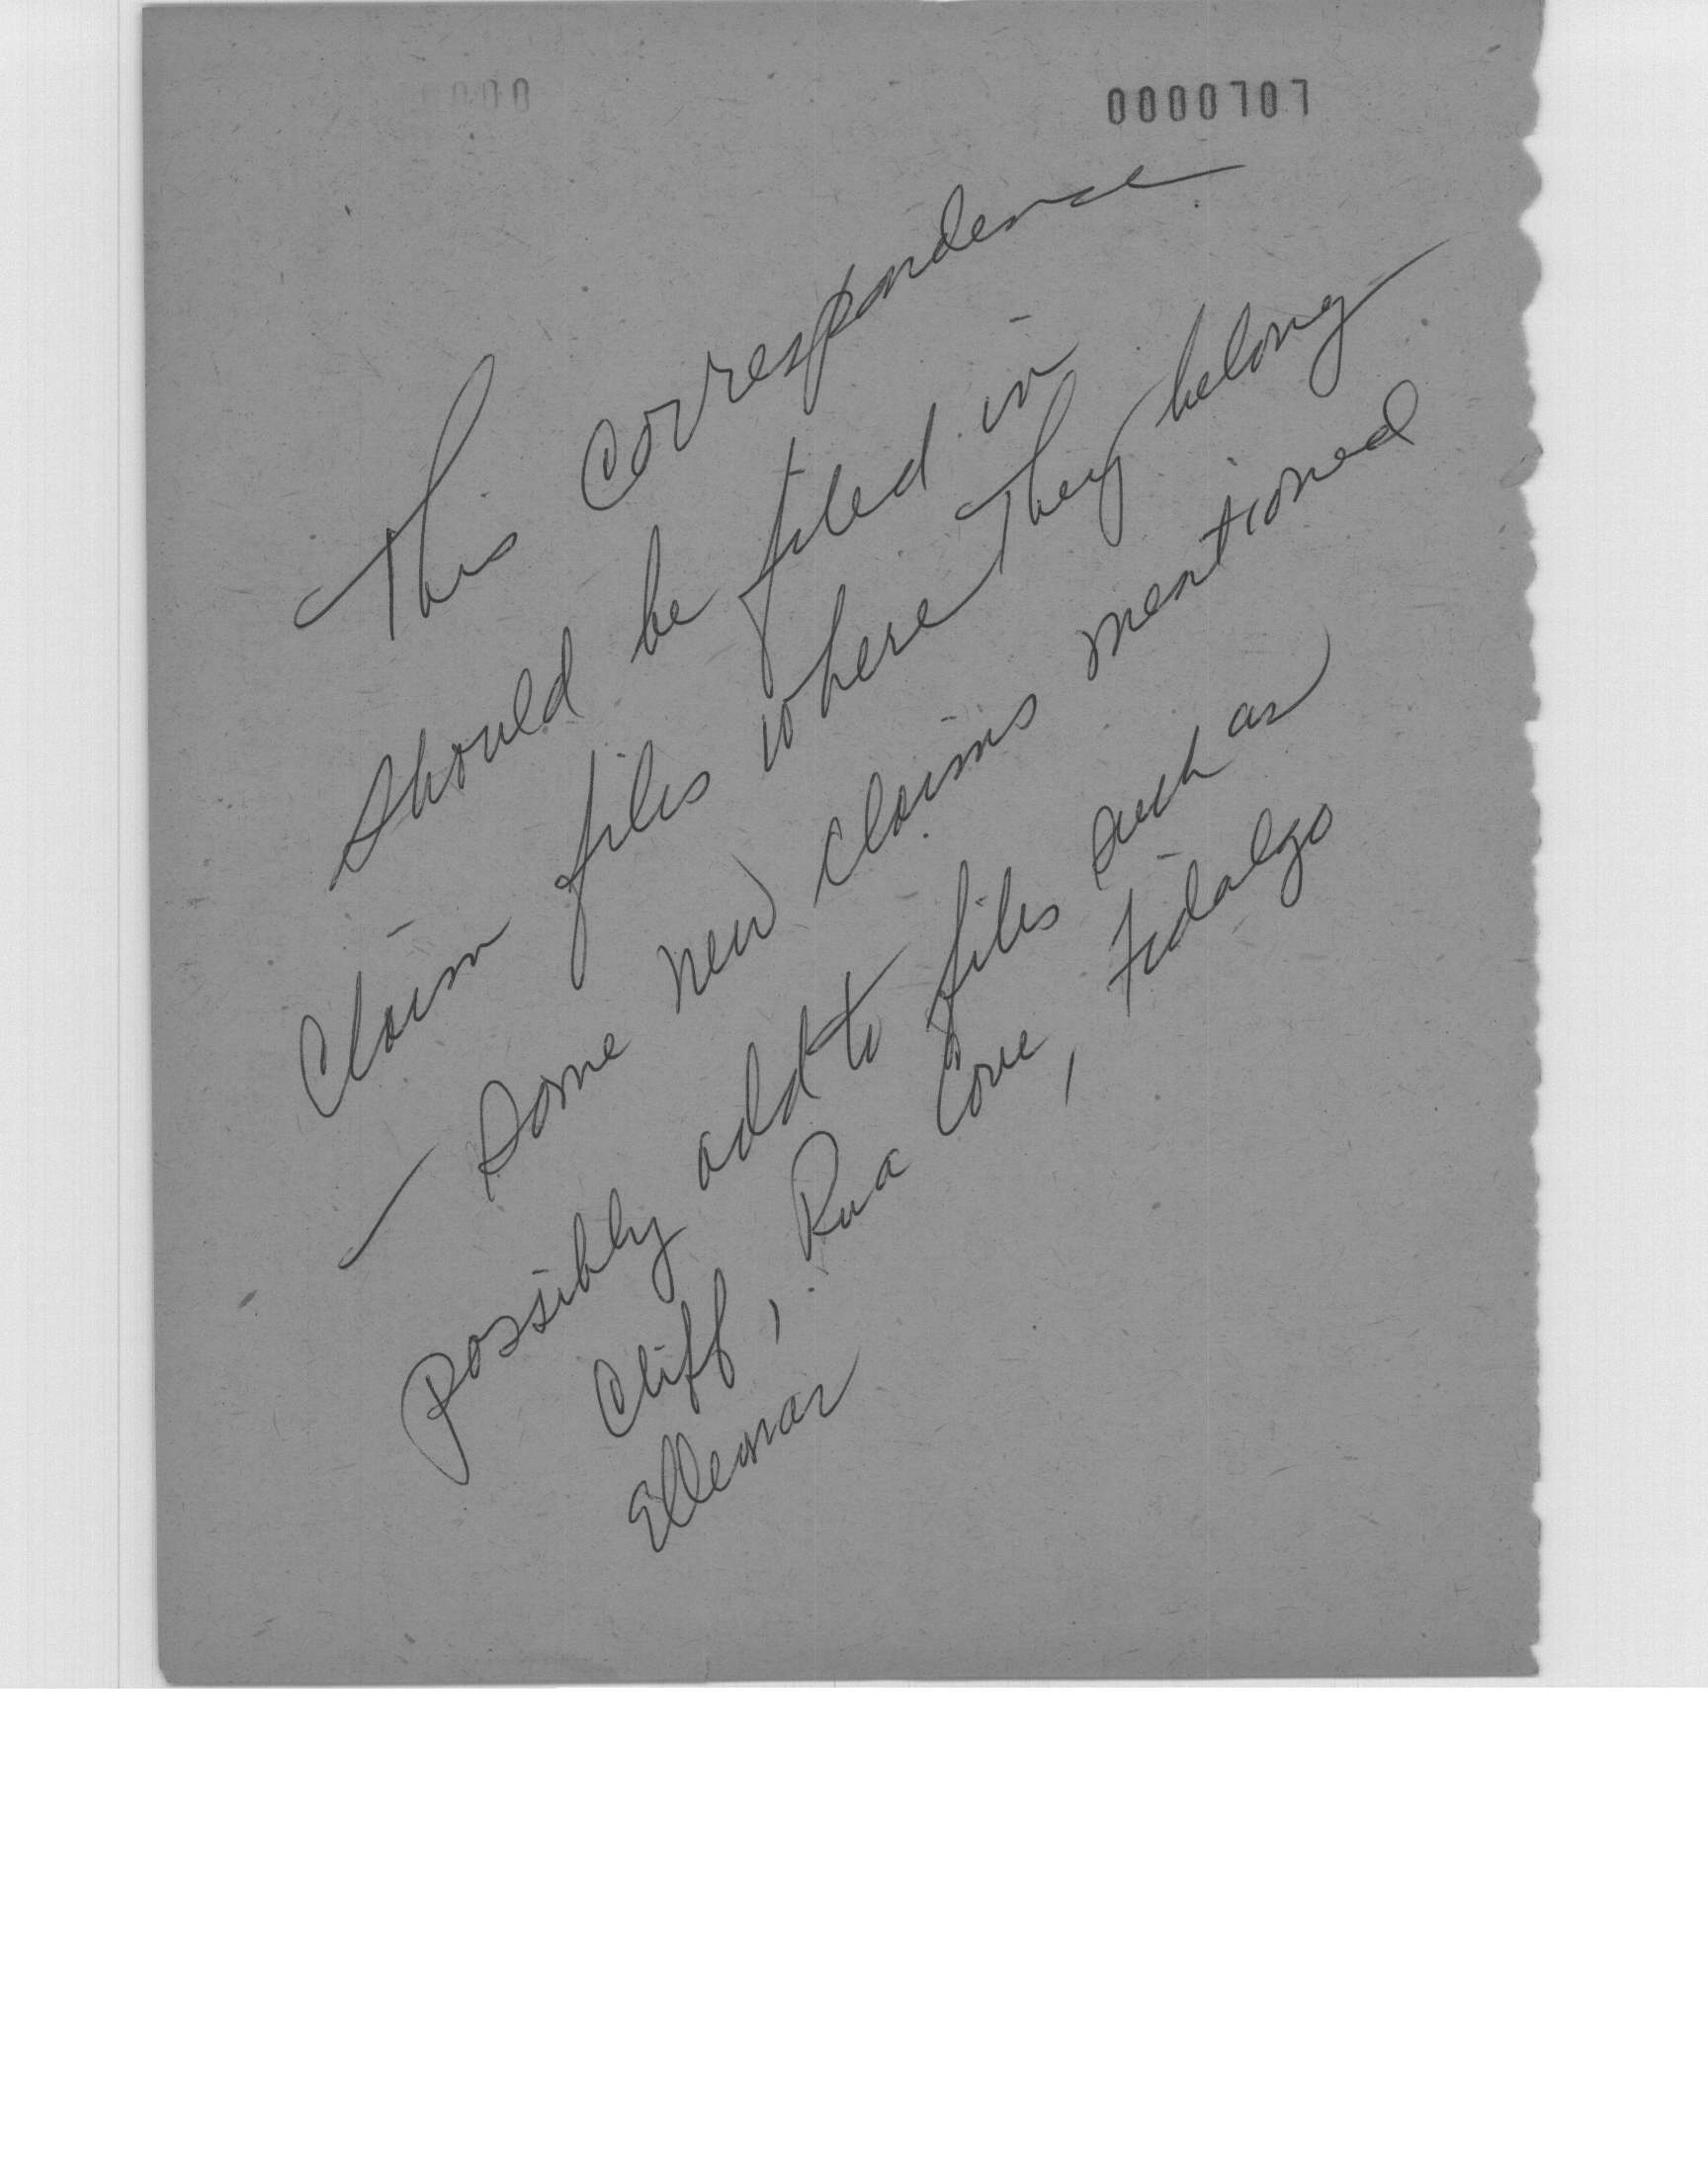 000
0000707
This correspondence
should be filed in
claim files where they belong
— Some new claims mentioned
possibly add to files such as
Cliff, Rua Cove, Fidalgo
Ellemar